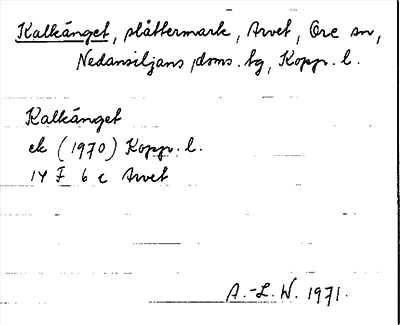 Kalkänget, slåttermark, Arvet, Ore sn,
Nedansiljans doms. tg, Kopp. l.
Kalkänget
ek (1970) Kopp. l.
14 F 6 c Arvet
A.-L. W. 1971.